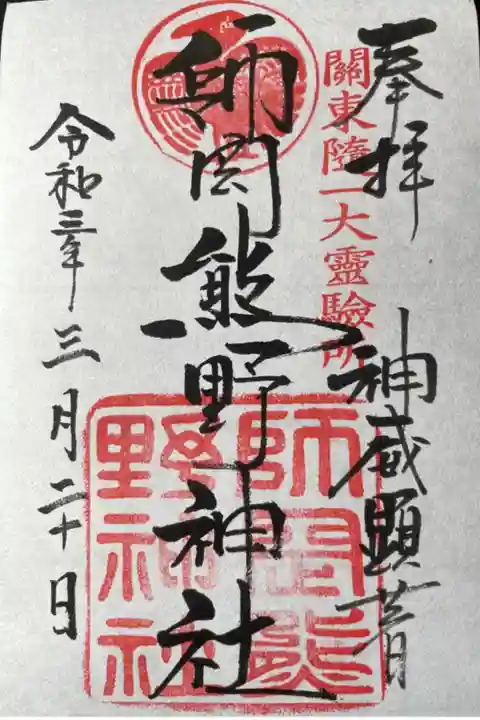 奉拝
神威顕著
關東隨一大靈驗所
師岡熊野神社
師岡熊
野神社
令和三年三月二十日